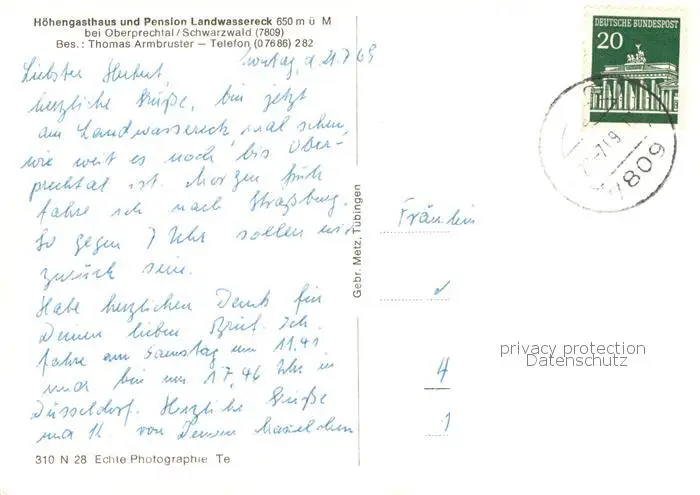 Höhengasthaus und Pension Landwassereck 650 m ü M
bei Oberprechtal/Schwarzwald (7809)
Bes.: Thomas Armbruster — Telefon (07686) 282
Sonntag, d. 21.7.69
Liebster Herbert,
herzliche Grüße, bin jetzt
am Landwassereck mal sehen,
wie weit es noch bis Ober-
prechtal ist. Morgen früh
fahre ich nach Straßburg.
So gegen 7 Uhr sollen wir
zurück sein.
Habe herzlichen Dank für
Deinen lieben Brief. Ich
fahre am Samstag um 11.41
und bin um 17,46 Uhr in
Düsseldorf. Herzliche Grüße
und von Deinem
310 N 28 Echte Photographie Te
Gebr. Metz, Tübingen
DEUTSCHE BUNDESPOST
20
7809
Fräulein
4
1
privacy protection
Datenschutz